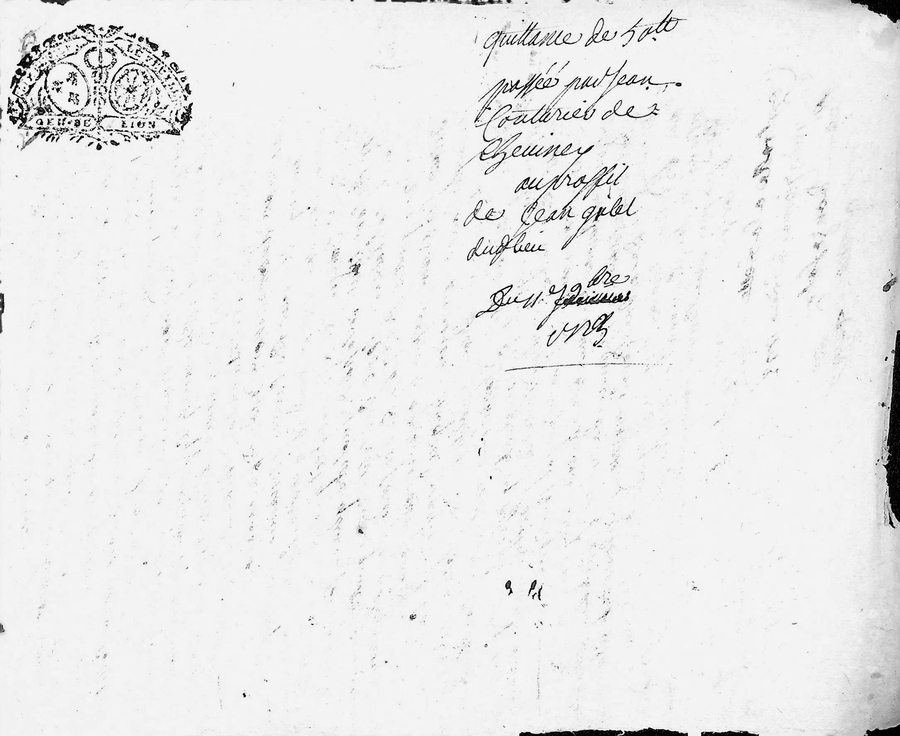 GEN. DE LION
quittance de 50lt
passéé par Jean
Couturier de
Cheviney
au proffit
de Jean gilet
dud lieu
Du 11e 7bre